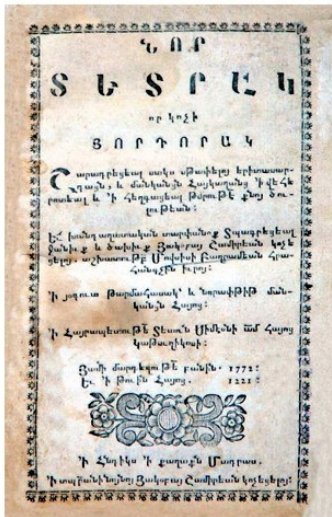 ՆՈՐ
ՏԵՏՐԱԿ
որ կոչի
ՅՈՐԴՈՐԱԿ
Շարադրեցեալ սակս սթափելոյ երիտասար-
դացն, և մանկանցն Հայկազանց ՛ի վեհե
րոտեալ և ՛ի հեղգացեալ թմրութէ քնոյ ծու-
լութեան:
Եւ խանդաղատական տարփանօք Տպագրեցեալ
ծախիւք Յակոբայ Շամիրեան կոչե
ցելոյ, աշխատութք Մովսիսի Բաղրամեան
հանգչին իւրոյ:
՛Ի յօգուտ թարմահասակ՝ և նորափթիթ ման-
կանցն Հայոց:
՛Ի Հայրապետութե Տեառն Սիմէօնի ամ Հայոց
կաթուղիկոսի:
Յամի մարդեղութե բանին. 1772:
Եւ ՛ի թուին Հայոց. 1221:
՛Ի Հնդիկս ՛ի քաղաքն Մադրաս.
՛Ի տպարանի նոյնոյ Յակոբայ Շամիրեան կոչեցելոյ: